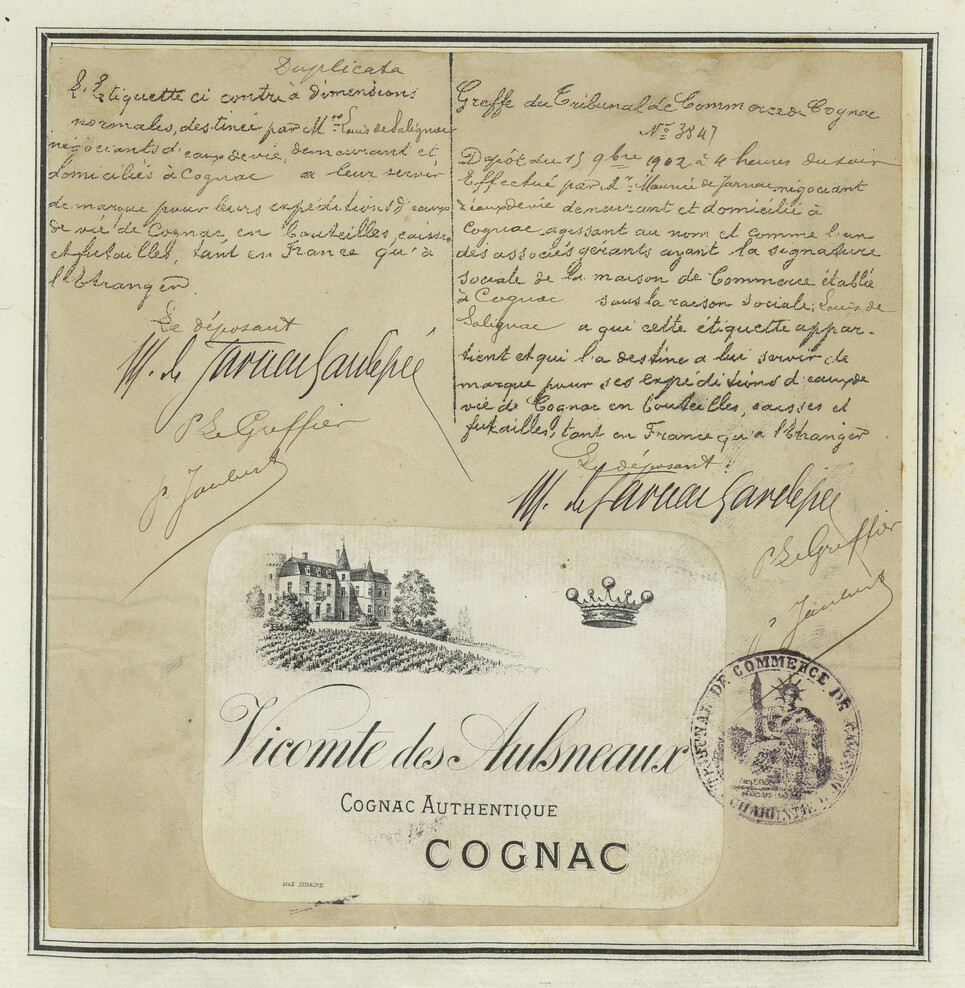 Duplicata
L'Etiquette ci contre à dimensions
normales, destinée par MM rs Louis de Salignac
négociants d'eaux de vie, demeurant et
domiciliés à Cognac a leur servir
de marque pour leurs expéditions d'eaux
de vie de Cognac en bouteilles, caisses
et futailles, tant en France qu'à
l'Etranger
Le déposant
M. de Jarnac Gardépée
P Le Greffier
P. Joubert
Greffe du Tribunal de Commerce de Cognac
No 3847
Dépôt du 15 9bre 1902 à 4 heures du soir
Effectué par Mr Maurice de Jarnac négociant
d'eaux de vie demeurant et domicilié à
Cognac agissant au nom et comme l'un
des associés gérants ayant la signature
sociale de la maison de Commerce établie
à Cognac sous la raison sociale, Louis de
Salignac a qui cette étiquette appar-
tient et qui l'a destine a lui servir de
marque pour ses expéditions d'eaux de
vie de Cognac en bouteilles, caisses et
futailles, tant en France qu'a l'Etranger
Le déposant.
M. de Jarnac Gardépée
P Le Greffier
P. Joubert
Vicomte des Aulsneaux
COGNAC AUTHENTIQUE
COGNAC
TRIBUNAL DE COMMERCE DE COGNAC
CHARENTE